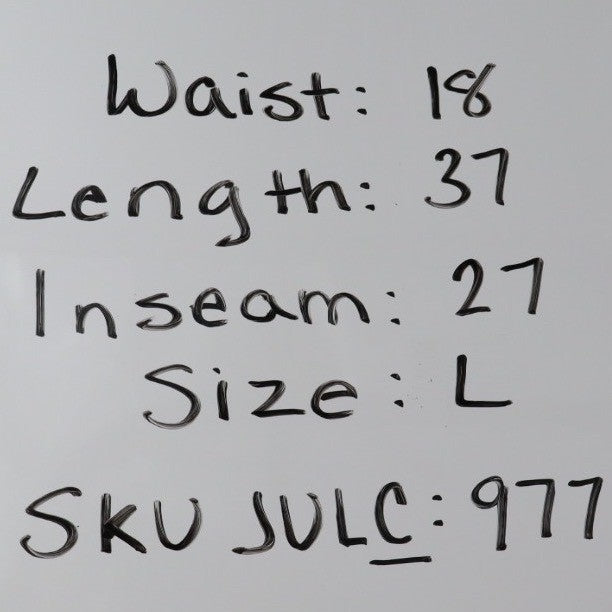 Waist: 18
Length: 37
Inseam: 27
Size: L
SKU JULC: 977